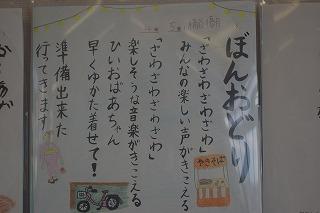 ぼんおどり
「ざわざわざわざわ」
みんなの楽しい声がきこえる
「ざわざわざわざわ」
楽しそうな音楽がきこえる
ひいおばあちゃん
早くゆかた着せて!
準備出来た
行ってきます
やきそば